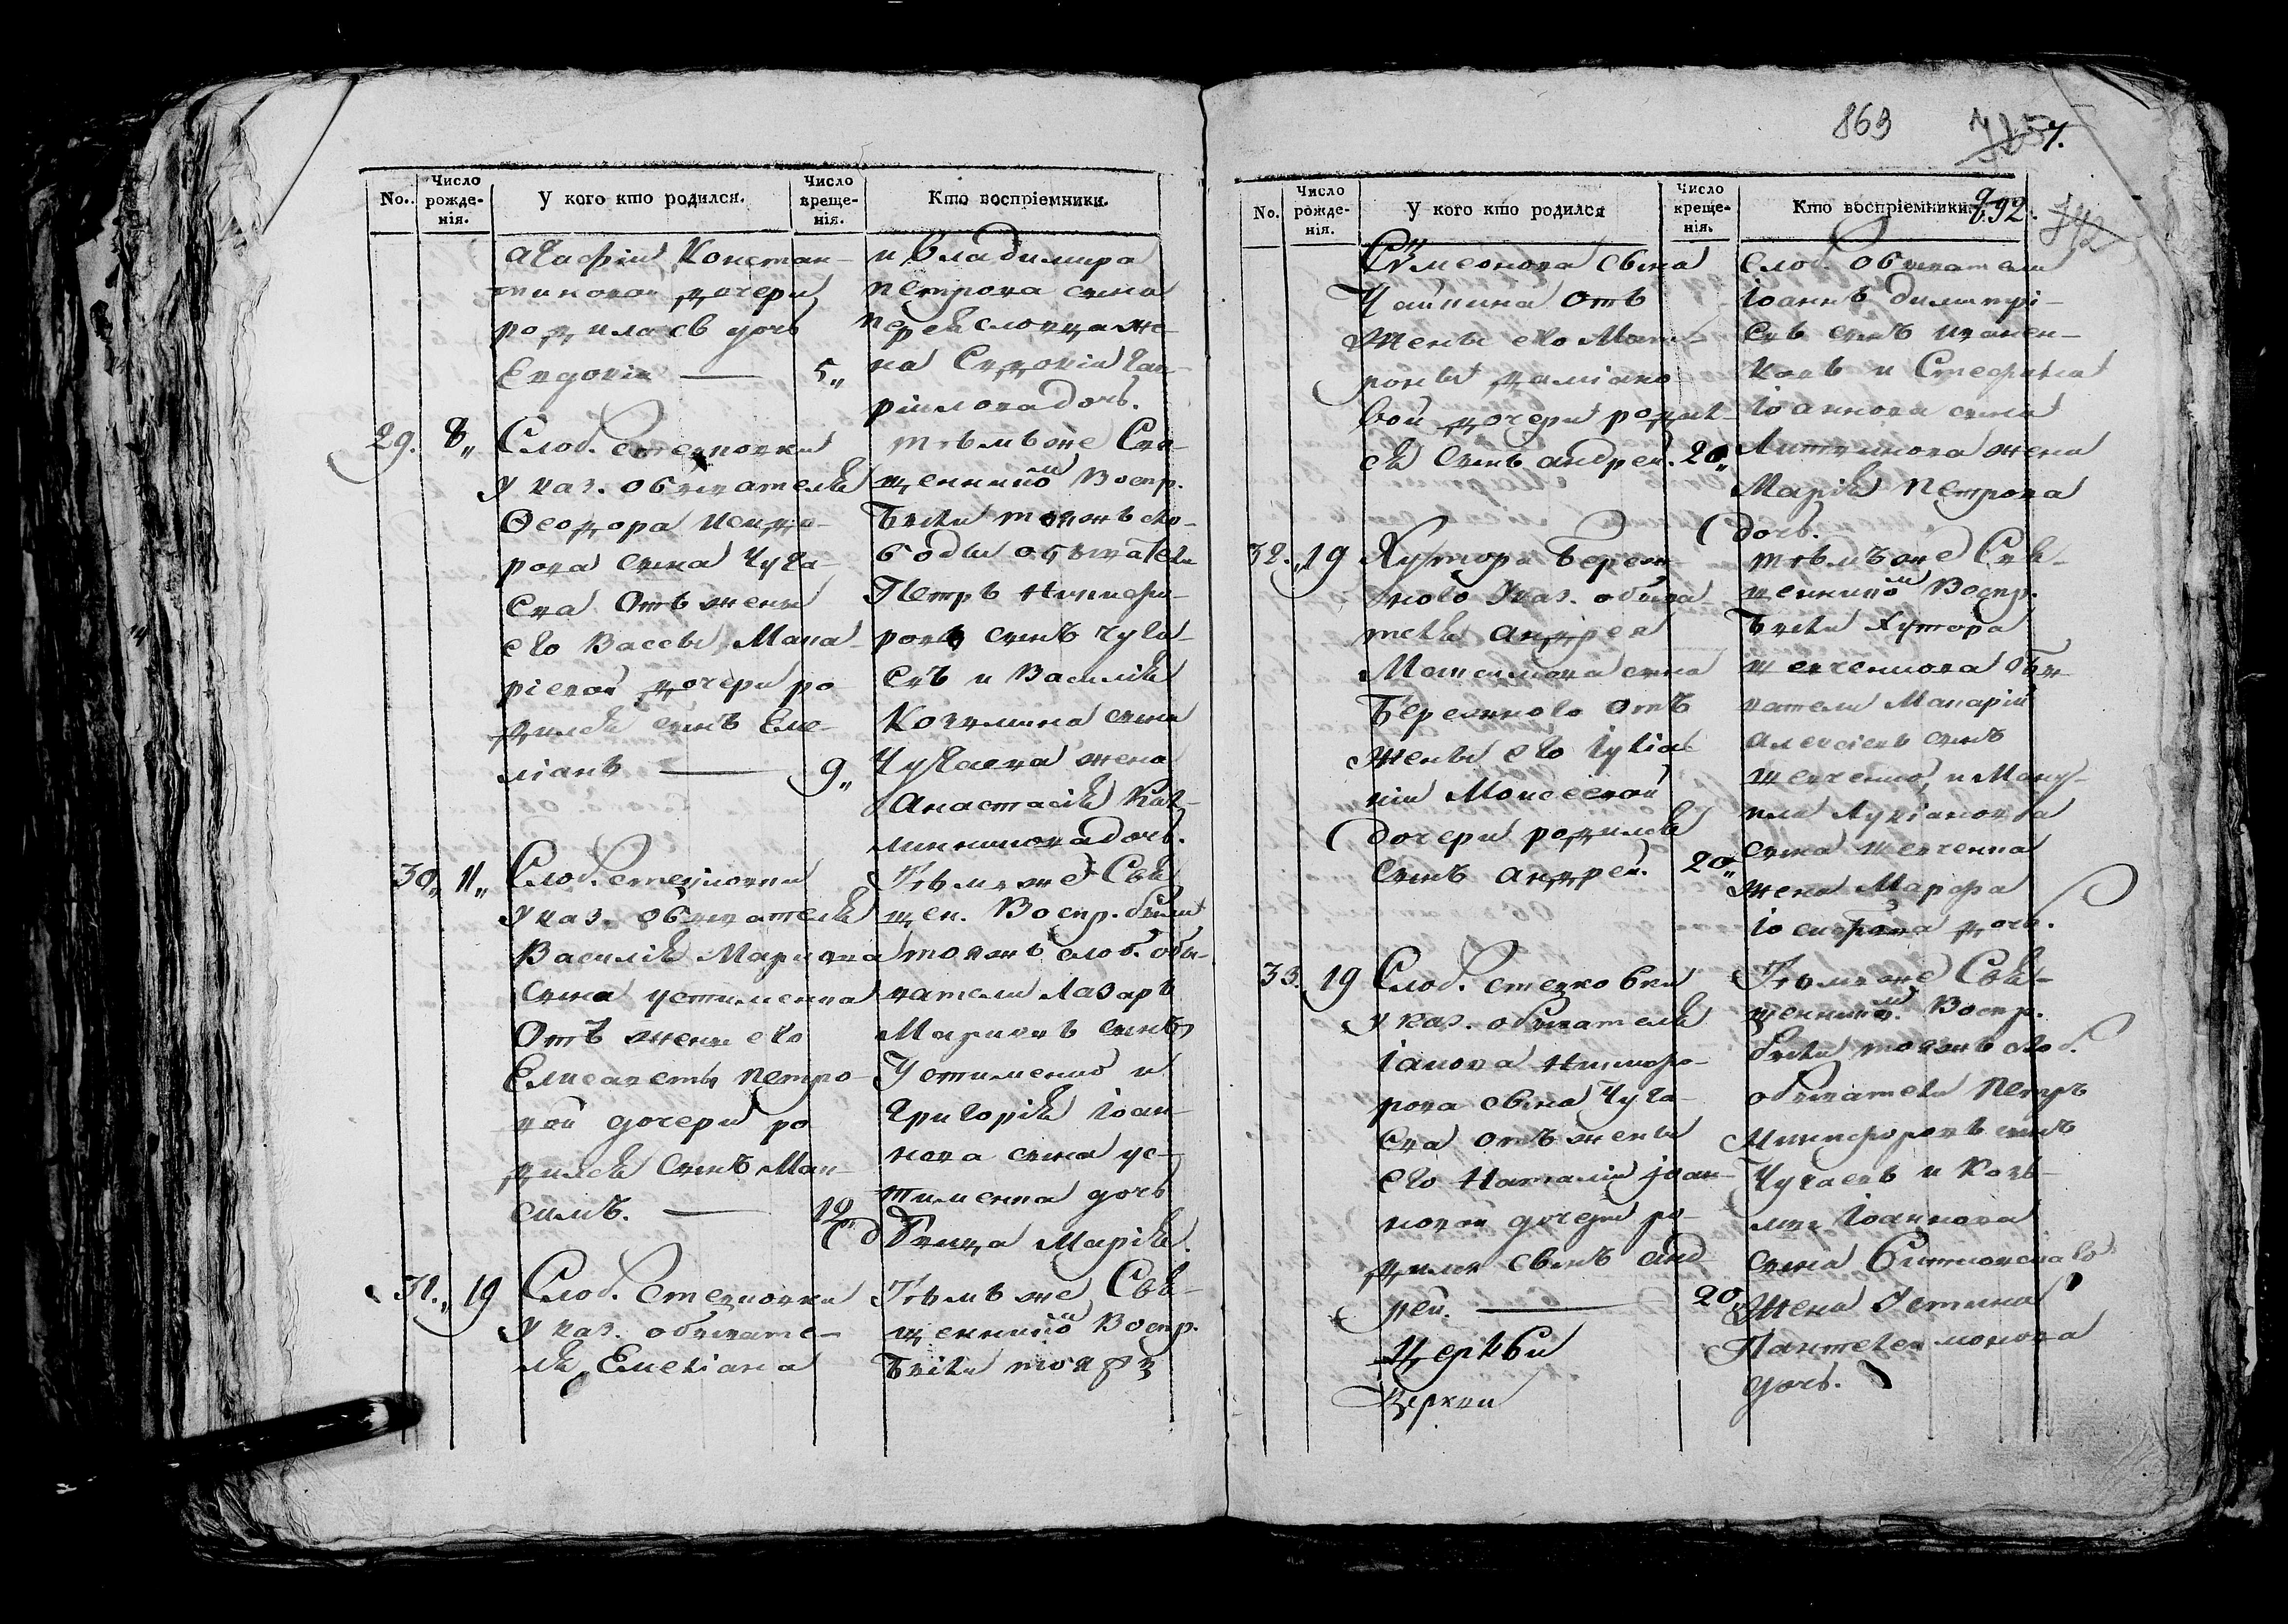 No.
Число рожде-нія.
У кого кто родился.
Число креще-нія.
Кто воспріемники.
Агафіи Констан-
тиновой дочери
родилась дочь
Евдокія — 5„
и Владимира
Петрова сына
жe-
на Евдокія Гав-
ріилова дочь.
29. 8„ Слоб. Стецковки
у каз. обывателя
Ѳеодора Исидо-
рова сына Чуга-
ева Отъ жены
его Вассы Мака-
ріевой дочери ро
дился сынъ Еме-
ліанъ — 9„
тѣмъ же Свя-
щенникомъ Воспр.
были тоежъ сло-
боды обыватели
Петръ Никифо-
ровъ сынъ Чуга-
евъ и Василія
сына
Чугаева жена
Анастасія
дочь.
30„ 11„ Слоб. Стецковки
у каз. обывателя
Василія Маркова
сына Устименка
Отъ жены его
Елисаветы Петро-
вой дочери ро
дился Сынъ Мак-
симъ. — 12„
Тѣмъ же Свя
щен. Воспр. были
тоежъ слоб. обы-
ватели Лазарь
Марковъ сынъ
Устименко и
Григорія Іоан-
нова сына Ус-
тименка дочь
дѣвица Марія.
31.„ 19 Слоб. Стецковки
у каз. обывате-
ля Емеліана
Тѣмъ же Свя-
щенникомъ Воспр.
были тоежъ
863
7.
892.
No.
Число рожде-нія.
У кого кто родился
Число креще-нія.
Кто воспріемники.
Сѵмеонова сына
Чайкина Отъ
Жены его Мат-
роны Даміано
вой дочери родил-
ся Сынъ Андрей. 20„
слоб. Обыватели
Іоаннъ Димитрі-
евъ сынъ Иванен-
ковъ и Стефана
Іоаннова сына
жена
Марія Петрова
дочь.
32.„ 19 Хутора Береж-
ного У каз. обыва-
теля Андрея
Максимова сына
Бережного Отъ
жены его Іуліа
ніи Моисеевой
дочери родился
Сынъ Андрей. 20„
тѣмъ же Свя-
щенникомъ Воспр.
были Хутора
Шевченкова Обы-
ватели Макарій
Алексіевъ сынъ
Шевченко, и Ману-
ила Лукіанова
сына Шевченка
жена Марфа
Іосифова дочь.
33. 19 Слоб. Стецковки
у каз. обывателя
Іакова Никифо-
рова сына Чуга-
ева отъ жены
его Наталіи Іоан-
новой дочери ро-
дился сынъ Анд
рей. — 20„
Тѣмъ же Свя-
щенником. Воспр.
были тоежъ слоб.
обыватели Петръ
Никифоровъ сынъ
Чугаевъ и Козь-
мы Іоаннова
сына
Жена Устина
Пантелеимонова
дочь.
Церкви
Церкви